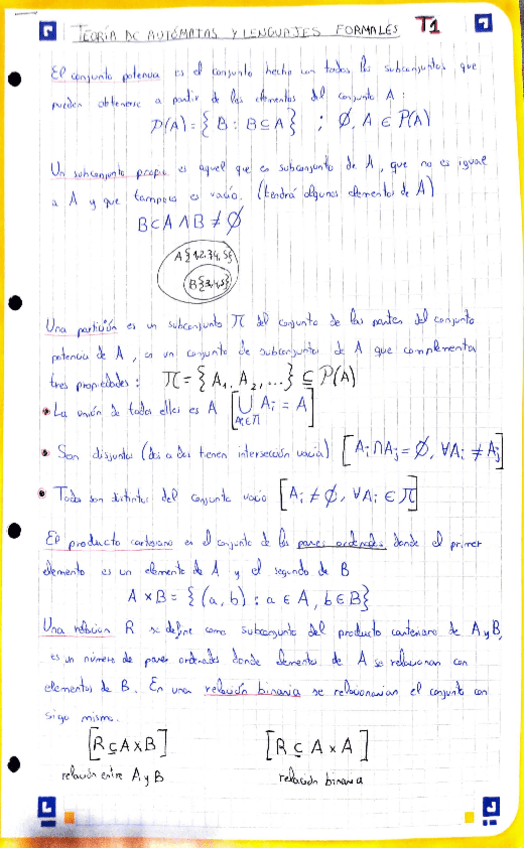 TEORÍA DE AUTÓMATAS Y LENGUAJES FORMALES T1
El conjunto potencia es el conjunto hecho con todos los subconjuntos que
pueden obtenerse a partir de los elementos del conjunto A:
P(A) = { B : B ⊆ A } ; ∅, A ∈ P(A)
Un subconjunto propio es aquel que es subconjunto de A, que no es igual
a A y que tampoco es vacío. (tendrá algunos elementos de A)
B⊂A ∧ B ≠ ∅
A{1,2,3,4,5}
B{3,4,5}
Una partición es un subconjunto Π del conjunto de las partes del conjunto
potencia de A, es un conjunto de subconjuntos de A que complementa
tres propiedades: Π = { A1, A2, ... } ⊆ P(A)
• La unión de todos ellos es A [⋃ Ai = A]
Ai∈Π
• Son disjuntos (dos a dos tienen intersección vacía) [Ai ∩ Aj = ∅, ∀Ai ≠ Aj]
• Todos son distintos del conjunto vacío [Ai ≠ ∅, ∀Ai ∈ Π]
El producto cartesiano es el conjunto de los pares ordenados donde el primer
elemento es un elemento de A y el segundo de B
A × B = { (a, b) : a ∈ A, b ∈ B }
Una relación R se define como subconjunto del producto cartesiano de A y B,
es un número de pares ordenados donde elementos de A se relacionan con
elementos de B. En una relación binaria se relacionarían el conjunto con
sigo mismo.
[R ⊆ A×B] [R ⊆ A × A]
relación entre A y B relación binaria